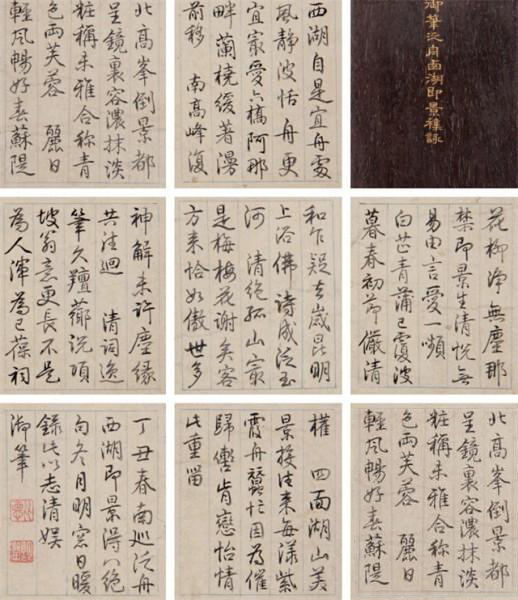 御筆泛舟西湖即景雜詠
西湖自是宜舟處
風静波恬舟更
宜最愛六橋阿那
畔蘭橈緩著漫
前移 南高峰復
北高峯倒景都
呈鏡裏容濃抹淡
粧稱未雅合稱青
色兩芙蓉 麗日
輕風暢好春蘇隄
花柳浄無塵那
禁即景生清悦無
易由言愛一頻
白芷青蒲已覆波
暮春初節儼清
和乍疑去歲昆明
上浴佛詩成泛玉
河 清絶孤山最
是梅梅花謝矣客
方来恰如傲世多
神解未許塵縁
共往迴 清詞逸
筆久羶薌説項
坡翁意更長不是
為人渾為己葆祠
北高峯倒景都
呈鏡裏容濃抹淡
粧稱未雅合稱青
色兩芙蓉 麗日
輕風暢好春蘇隄
權 四面湖山美
景接往来每漾紫
霞舟蠶忙因為催
歸轡肯戀怡情
此重留
丁丑春南巡泛舟
西湖即景得八絶
句冬月明窓日暖
録此以志清娱
御筆